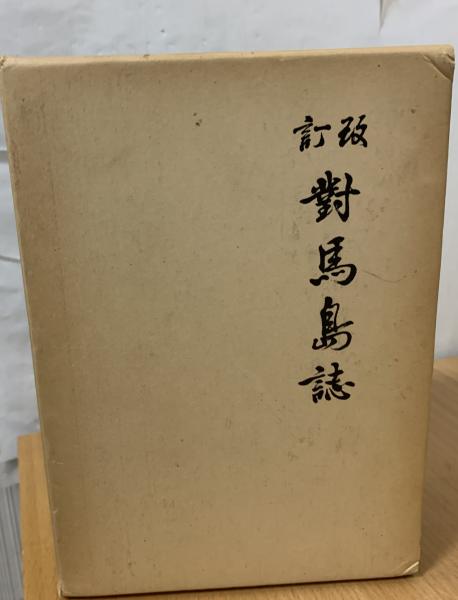 改訂
對馬島誌